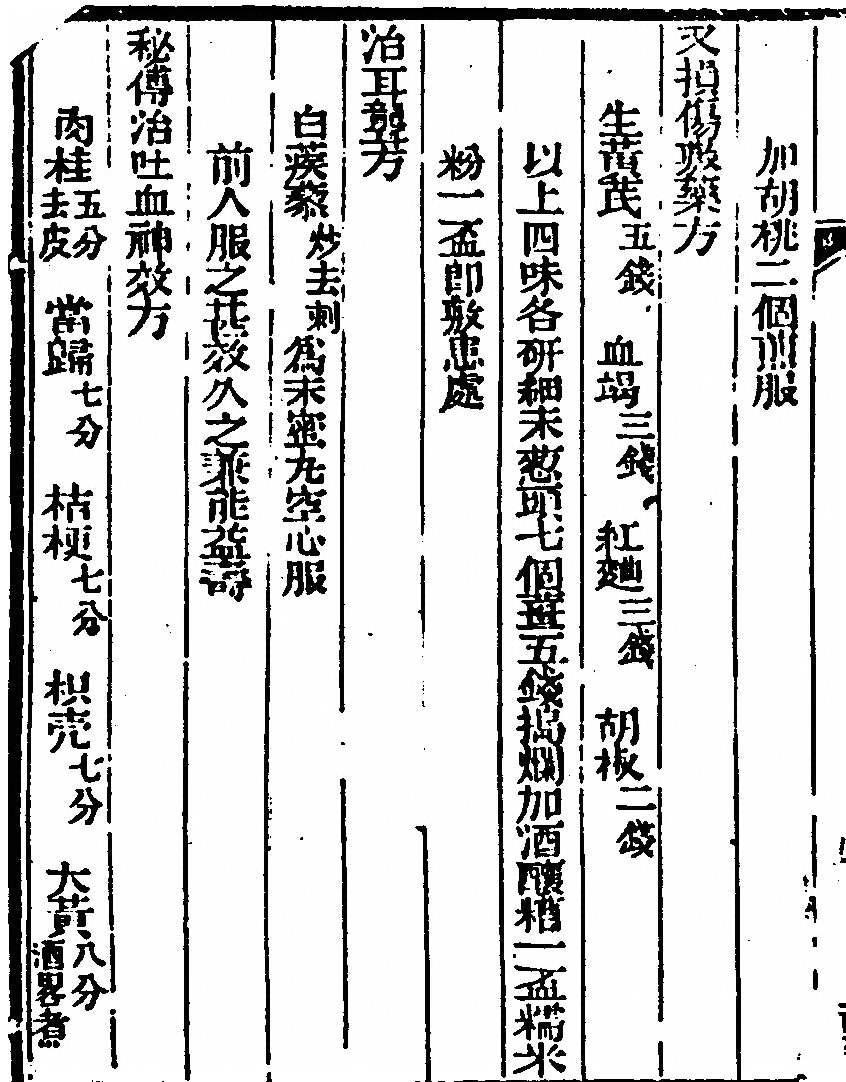 加胡桃二個煎服
又損傷敷藥方
生黃芪五錢 血竭三錢 紅麯三錢 胡椒二錢
以上四味各研細末葱頭七個薑五錢搗爛加酒釀糟一盃糯米
粉一盃即敷患處
治耳聾方
白蒺藜炒去刺為末蜜丸空心服
前人服之甚效久之兼能益壽
秘傳治吐血神效方
肉桂五分去皮 當歸七分 桔梗七分 枳壳七分 大黃八分酒畧煮